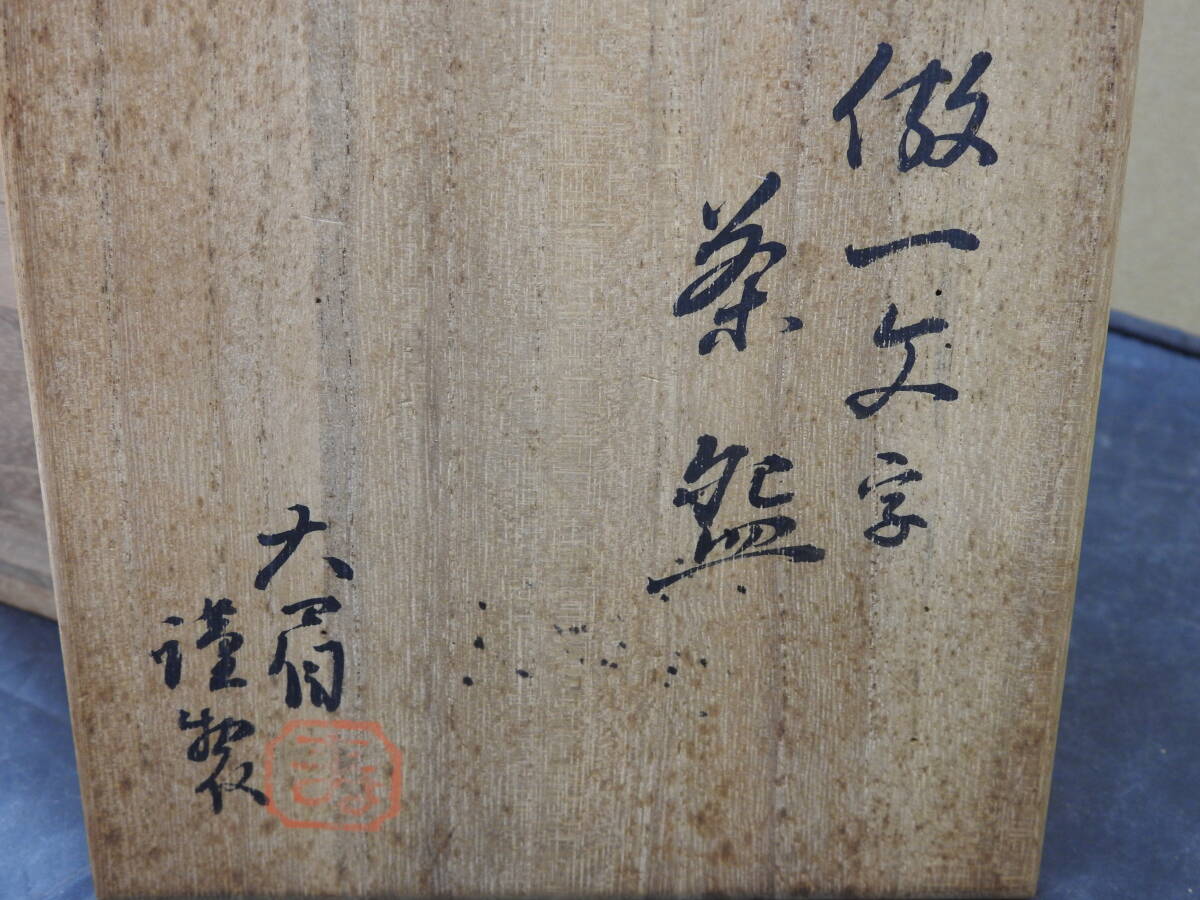 倣一文字
茶盌
大眉
謹製